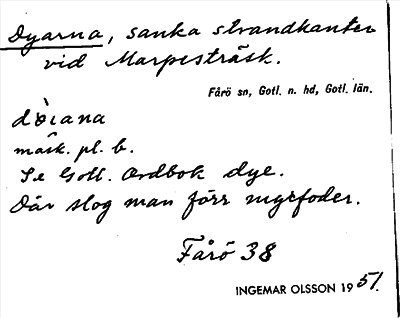 Dyarna, sanka strandkanter
vid Marpesträsk.
Fårö sn, Gotl. n. hd, Gotl. län.
dȯiana
mask. pl. b.
Se Gotl. Ordbok dye.
Där slog man förr myrfoder.
Fårö 38
INGEMAR OLSSON 1951.